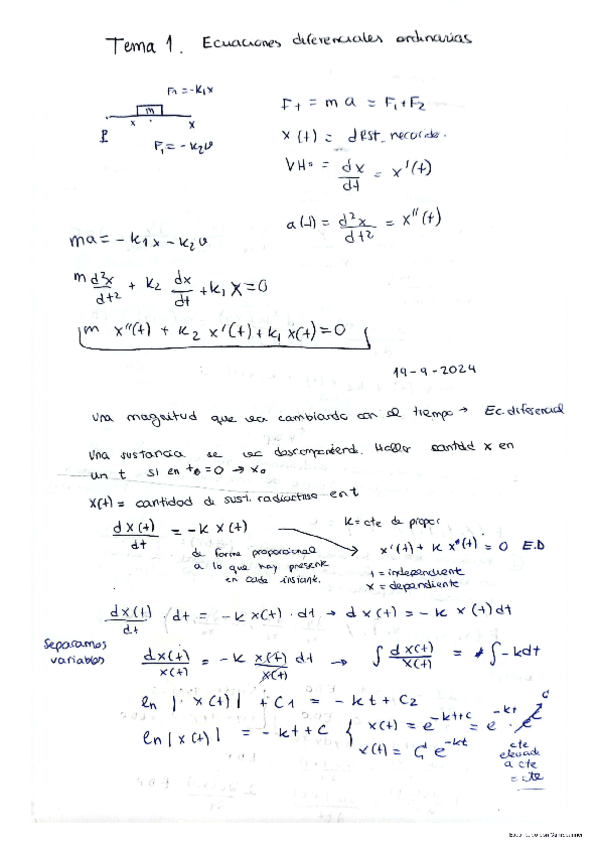 Tema 1. Ecuaciones diferenciales ordinarias
F₁ = -k₁x
m
x x
P
F₁ = -k₂v
F+ = m a = F₁+F₂
x(t) = dist. recorrido.
V(t) = dx/dt = x'(t)
a(t) = d²x/dt² = x''(t)
ma = -k₁x - k₂v
m d²x/dt² + k₂ dx/dt + k₁ x = 0
m x''(t) + k₂ x'(t) + k₁ x(t) = 0
19-9-2024
Una magnitud que va cambiando con el tiempo → Ec. diferencial
Una sustancia se va descomponiend. Hallar cantdd x en
un t si en t₀ = 0 → x₀
x(t) = cantidad de sust. radioactiva en t
dx(t)/dt = -k x(t)
k = cte de propor
de forma proporcional
a lo que hay presente
en cada instante.
x'(t) + k xⁿ(t) = 0 E.D
t = independiente
x = dependiente
dx(t)/dt · dt = -k x(t) · dt → dx(t) = -k x(t) dt
Separamos
variables
dx(t)/x(t) = -k x(t)/x(t) dt → ∫ dx(t)/x(t) = ∫ -k dt
ln |x(t)| + C₁ = -kt + C₂
ln |x(t)| = -kt + c { x(t) = e^(-kt+c) = e^(-kt) · e^c
x(t) = C e^(-kt)
cte
elevada
a cte
= cte